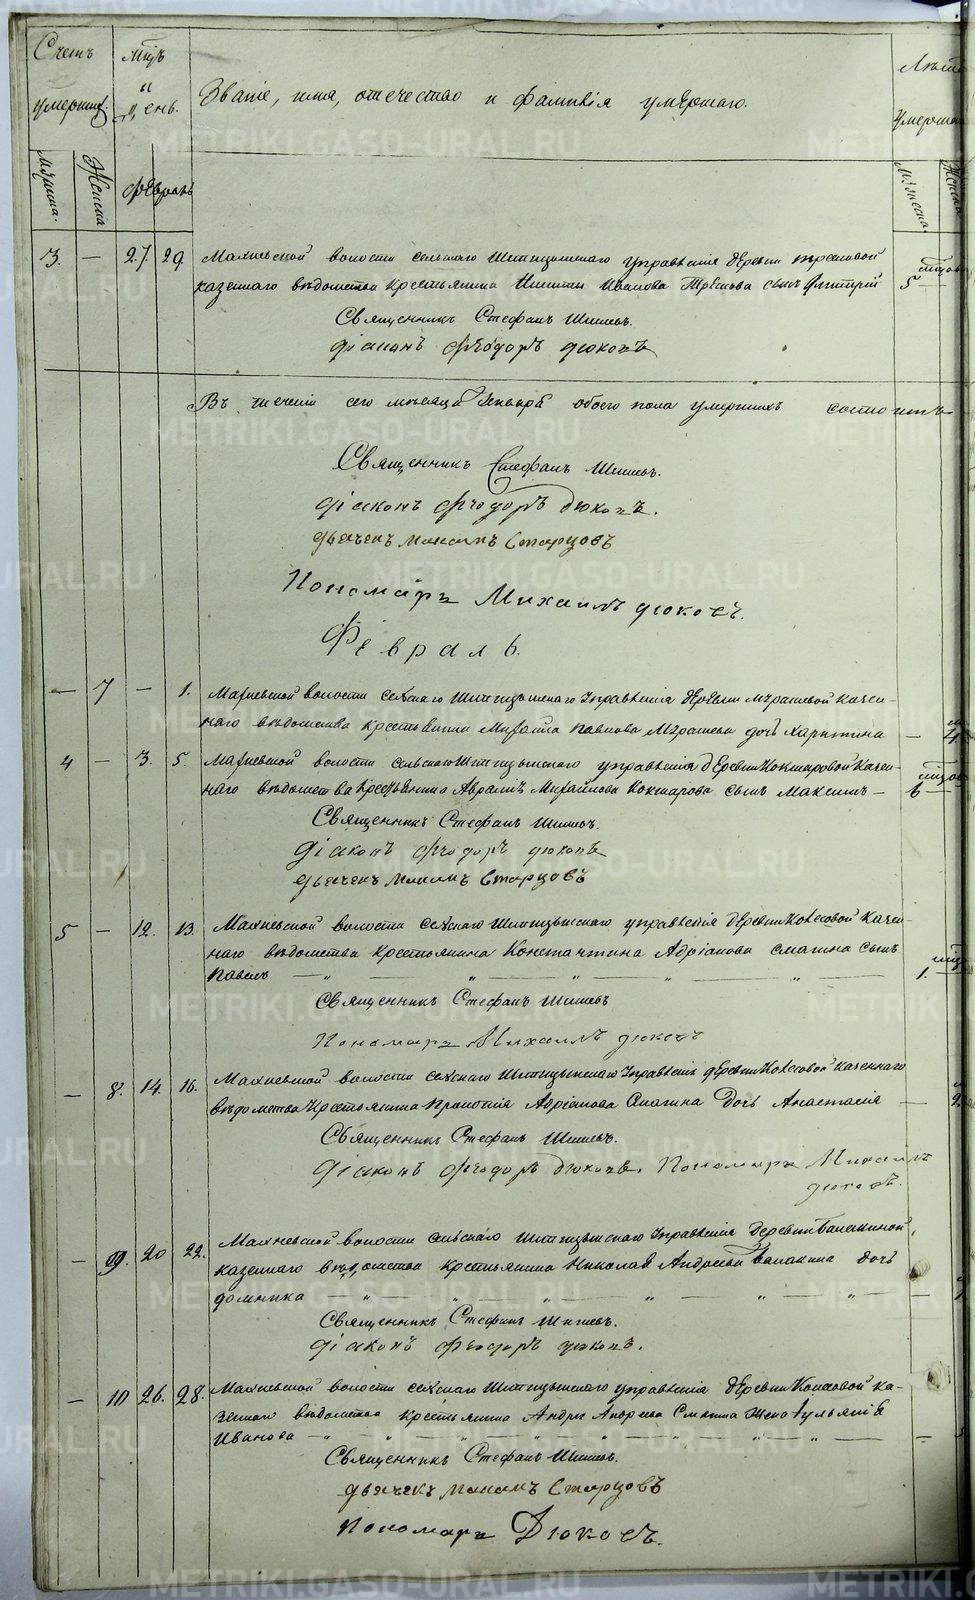 Счетъ умершихъ.
Мцъ и день.
Званіе, имя, отчество и фамилія умершаго.
Лѣта умершаго
Мужеска.
Женска
Февраль
Мужеска.
Женска
3. — 27. 29. Махневской волости сельскаго Шипицынскаго управленія деревни Трешовой
казеннаго вѣдомства крестьянина Никиты Иванова Трешова сынъ Дмитрій 5
Священникъ Стефанъ
діаконъ Ѳеодоръ Дюковъ
Въ теченіи сего мѣсяца Генваря обоего пола умершихъ состоитъ
Священникъ Стефанъ
діаконъ Ѳеодоръ Дюковъ.
дьячекъ Максимъ Старцовъ
Пономарь Михаилъ Дюковъ.
Февраль.
— 7 — 1. Махневской волости сельскаго Шипицынскаго управленія деревни казен-
наго вѣдомства крестьянина Михаила Павлова дочь Харитина — 4
4 — 3. 5. Махневской волости сельскаго Шипицынскаго управленія деревни Кокшаровой казен-
наго вѣдомства крестьянина Авраама Михайлова Кокшарова сынъ Максимъ — 6
Священникъ Стефанъ
діаконъ Ѳеодоръ Дюковъ
дьячекъ Максимъ Старцовъ
5 — 12. 13. Махневской волости сельскаго Шипицынскаго управленія деревни Колесовой казен-
наго вѣдомства крестьянина Константина Адріанова Смагина сынъ
Павелъ — „ — „ — „ — „ — „ — 1.
Священникъ Стефанъ
Пономарь Михаилъ Дюковъ
— 8. 14. 16. Махневской волости сельскаго Шипицынскаго управленія деревни Колесовой казеннаго
вѣдомства крестьянина Адріанова Смагина дочь Анастасія — 2.
Священникъ Стефанъ
діаконъ Ѳеодоръ Дюковъ. Пономарь Михаилъ
Дюковъ.
— 9. 20 22. Махневской волости сельскаго Шипицынскаго управленія деревни Балакиной
казеннаго вѣдомства крестьянина Николая Андреева Балакина дочь
Домника — „ — „ — „ — „ — „ — „ —
Священникъ Стефанъ
діаконъ Ѳеодоръ Дюковъ.
— 10 26. 28. Махневской волости сельскаго Шипицынскаго управленія деревни Колесовой ка-
зеннаго вѣдомства крестьянина Андрея Андреева Смагина жена Ульянія
Иванова — „ — „ — „ — „ — „ — „ —
Священникъ Стефанъ
дьячекъ Максимъ Старцовъ
Пономарь Дюковъ.
METRIKI.GASO-URAL.RU